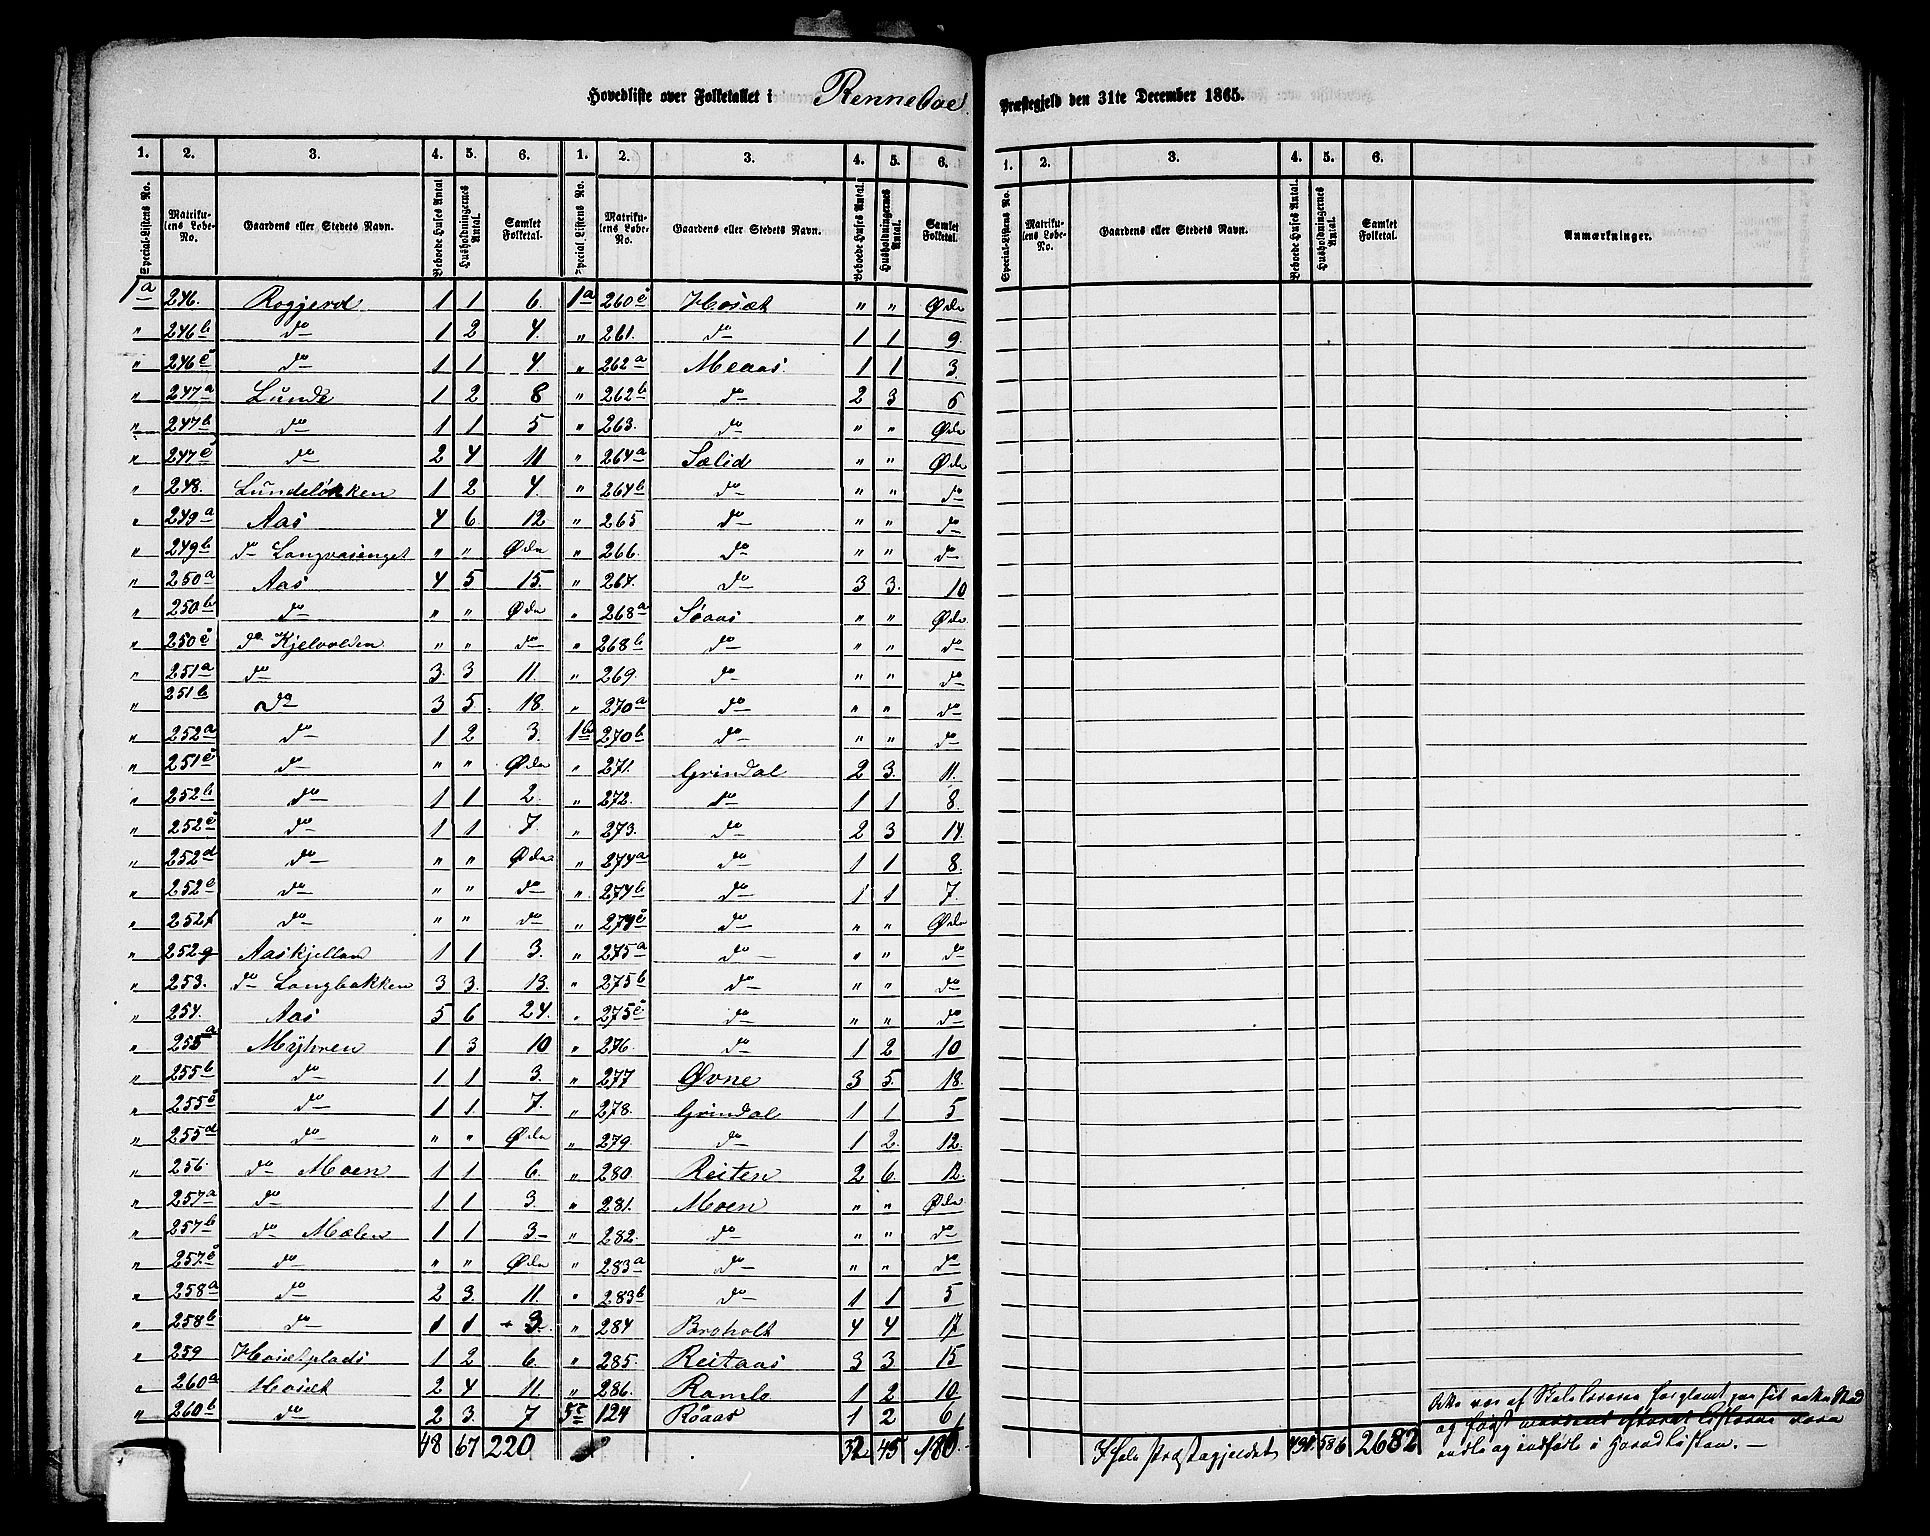 Hovedliste over Folketallet i Renneboe Præstegjeld den 31te December 1865.
1. 2. 3. 4. 5. 6. 1. 2. 3. 4. 5. 6. 1. 2. 3. 4. 5. 6.
Special-Listens No. Matrikulens Løbe-No. Gaardens eller Stedets Navn. Beboede Huses Antal Husholdningernes Antal. Samlet Folketal. Special Listens No. Matrikulens Løbe-No. Gaardens eller Stedets Navn. Beboede Huses Antal. Husholdningernes Antal. Samlet Folketal. Special-Listens No. Matrikulens Løbe-No. Gaardens eller Stedets Navn. Beboede Huses Antal. Husholdningernes Antal. Samlet Folketal. Anmærkninger.
1a 246. Roggjerd 1 1 6. 1a 260c Hosæt " " Øde
" 246b do 1 2 4. " 261. do 1 1 9.
" 246c do 1 1 4 " 262a Meaas 1 1 3.
" 247a Lunde 1 2 8 " 262b do 2 3 6
" 247b do 1 1 5 " 263. do " " Øde
" 247c do 2 4 11 " 264a Sælid " " Øde
" 248. Lundeløkken 1 2 4. " 264b do " " do
" 249a Aas 4 6 12. " 265 do " " do
" 249b do Langvasenget " " Øde " 266. do " " do
" 250a Aas 4 5 15. " 267. do 3 3. 10
" 250b do " " Øde " 268a Søaas " " Øde
" 250c do Kjelvolden " " do " 268b do " " do
" 251a do 3. 3 11. " 269. do " " do
" 251b do 3 5. 18. " 270a do " " do
" 252a do 1 2 3. 1b 270b do " " do
" 251c do " " Øde " 271. Grindal 2 3. 11.
" 252b do 1 1 2. " 272. do 1 1 8.
" 252c do 1 1 7. " 273. do 2 3 14.
" 252d do " " Øde " 274a do 1 1 8.
" 252e do " " do " 274b do 1 1 7.
" 252f do " " do " 274c do " " Øde
" 252g Aaskjellan 1 1 3. " 275a do " " do
" 253. do Langbakken 3 3. 13. " 275b do " " do
" 254. Aas 5 6 24. " 275c do " " do
" 255a Myhren 1 3 10 " 276. do 1 2 10
" 255b do 1 1 3. " 277 Øvne 3 5. 18.
" 255c do 1 1. 7. " 278. Grindal 1 1 5
" 255d do " " Øde " 279. do 1 2. 12.
" 256. do Moen 1 1 6. " 280. Reiten 2 6. 12.
" 257a do 1 1 3. " 281. Moen " " Øde
" 257b do Mælen 1 1 3 " 282. do " " do
" 257c do " " Øde " 283a do " " do
" 258a do 2 3. 11. " 283b do 1 1 5
" 258b do 1 1 3. " 284 Broholt 4 4 17
" 259 Hosætplads 1 2 6. " 285. Reitaas 3 3 15
" 260a Hosæt 2 4 11. " 286. Ramlo 1 2 10
" 260b do 2 3. 7 5c 124 Røaas 1 2 6
48 67 220 32 45 186. I hele Præstegjeldet 434 586 2682
og indførte i Hovedlisten.